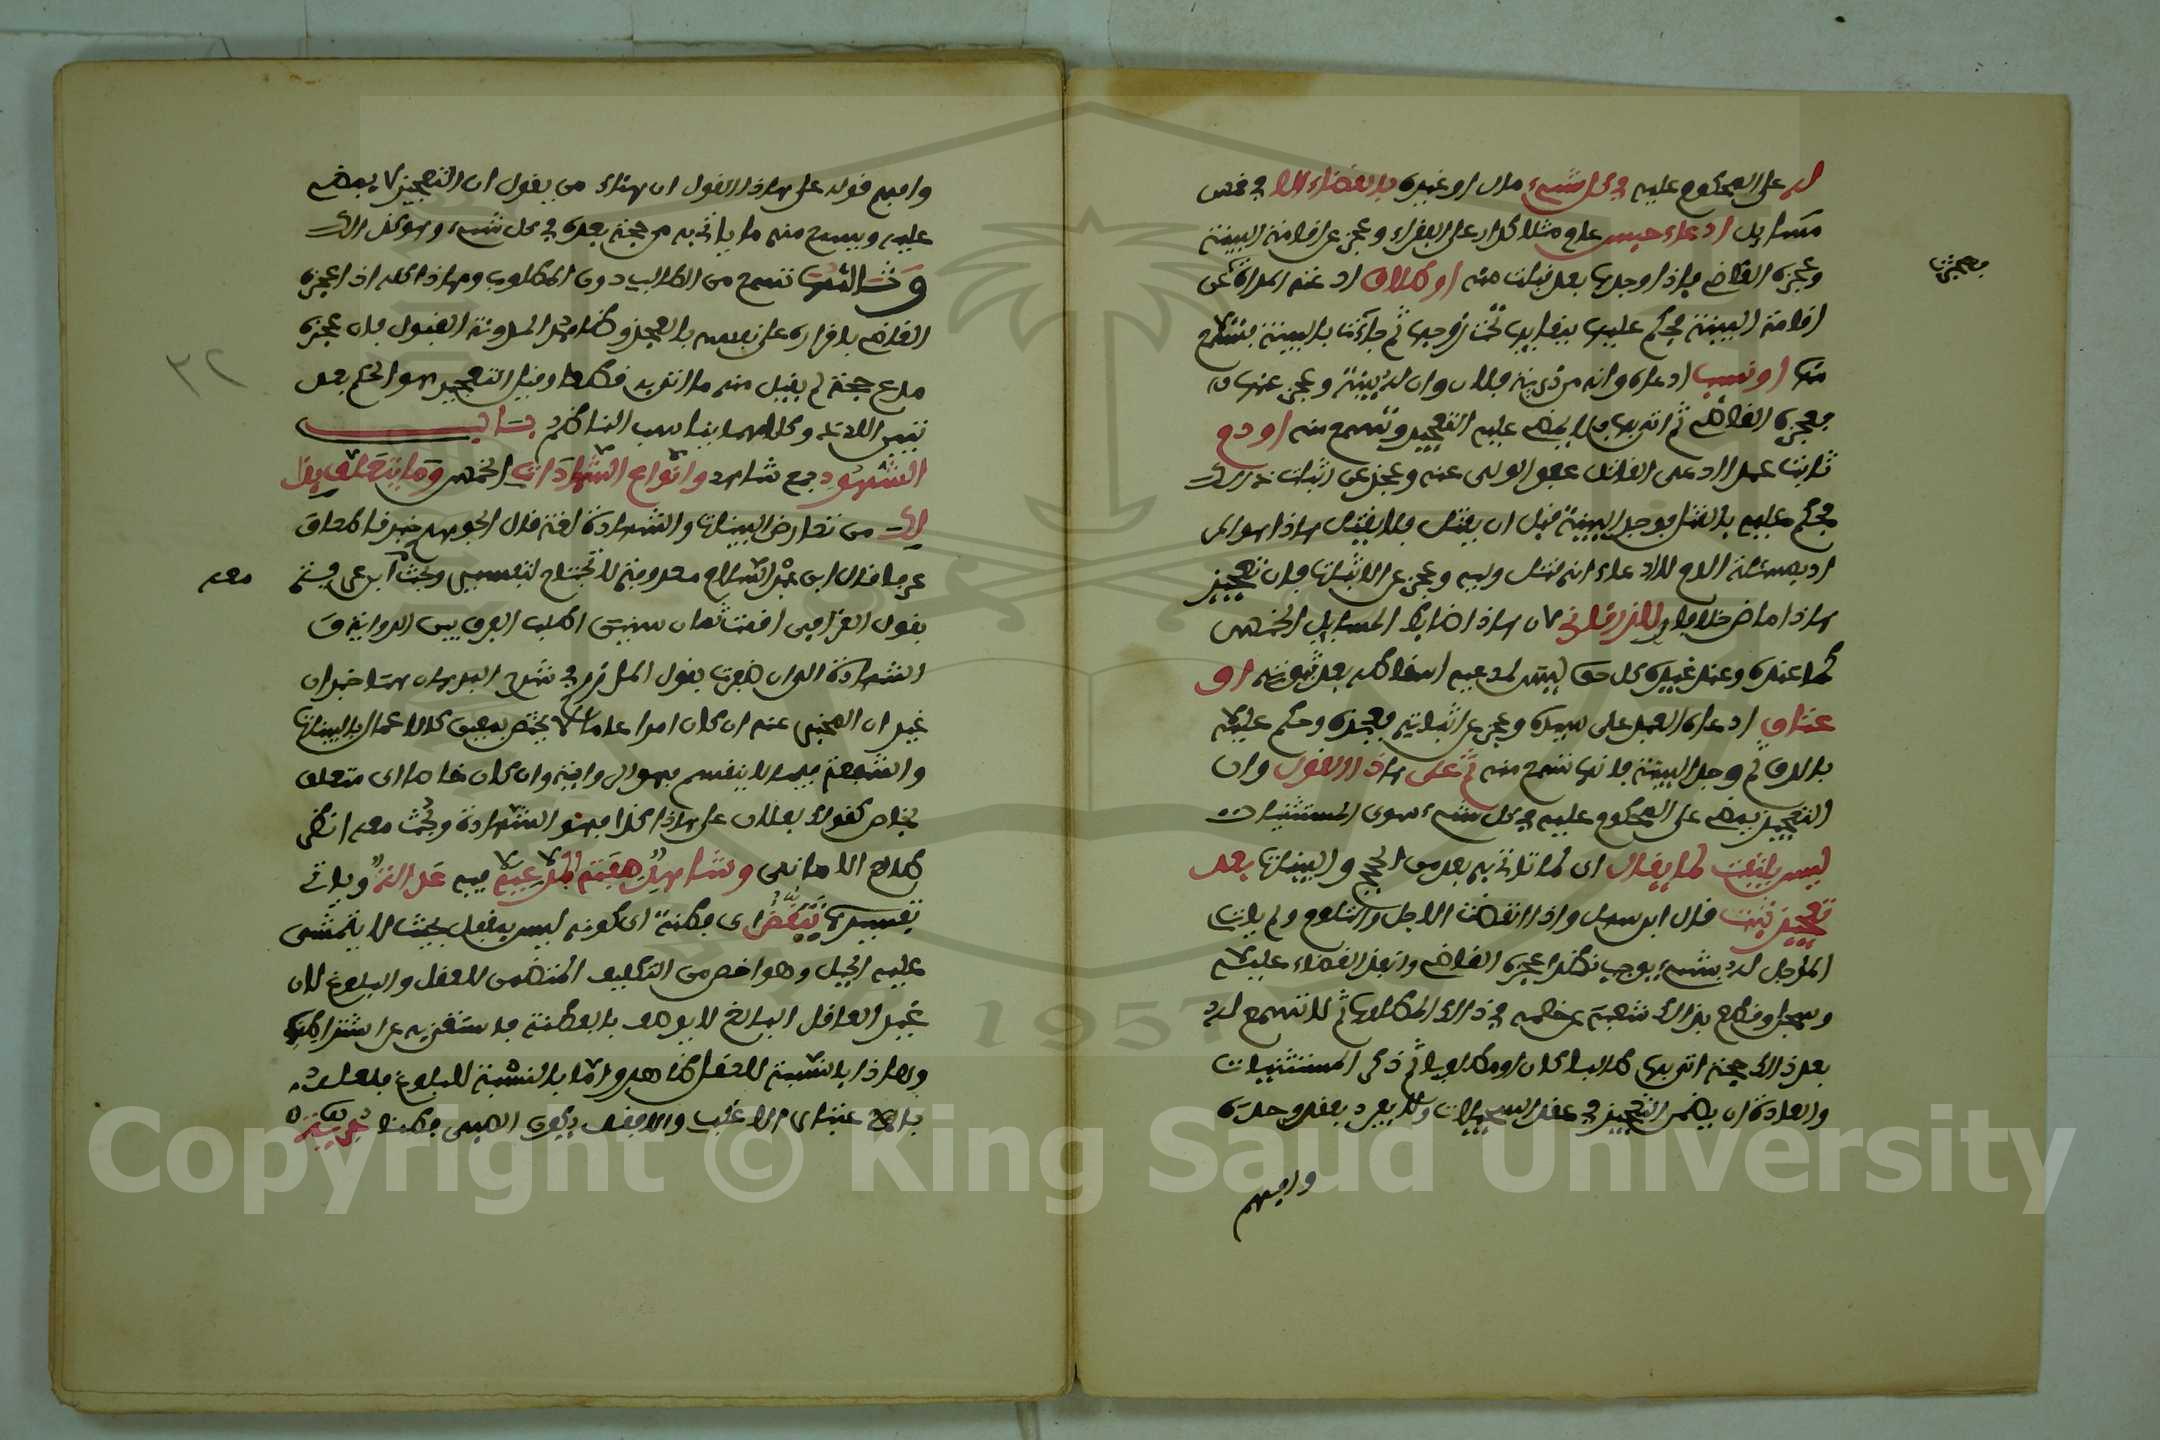 له على المحكوم عليه في كل شيء مال او غيره بالقضاء الا في خمس
مسايل ادعاء حبس عام مثلا كدار على الفقراء وعجز عن اقامة البينة
وعجزه القاضي فاذا وجدها بعد قبلت منه او طلاق ادعته المراة عن
معجزت
اقامة البينة فحكم عليها ببقايها تحت زوجها ثم جاءت بالبينة فتسمع
منها او نسب ادعاه وانه من ذرية فلان وان له بينة وعجز عنها
فعجزه القاضي ثم اتى بها فلا يمضي عليه التعجيز وتسمع منه او دم
ثابت عمدا ادعى القاتل عفو الولي عنه وعجز عن اثبات ذلك
فحكم عليه بالقتل فوجد البينة قبل ان يقتل فلا يقتل هذا هو المراد
بمسئلة الدم لا ادعاء انه قتل وليه وعجز عن الاثبات فان تعجيز
هذا ماض خلافا للزرقاني لان هذا ضابط المسايل الخمس
كما عنده وعند غيره كل حق ليس لمدعيه اسقاطه بعد ثبوته او
عتاق ادعاه العبد على سيده وعجز عن اثباته فعجزه وحكم عليه
بالرق ثم وجد البينة فانها تسمع منه ثم على هذا القول وان
التعجيز يمضي على المحكوم عليه في كل شيء سوى المستثنيات
ليس يلتفت لما يقال اي لما تاتي به بعد من الحجج والبينات بعد
تعجيز ثبت قال ابن سهل واذا انقضت الاجل والتلوم ولم يات
المؤجل له بشيء يوجب نظرا عجزه القاضي وانفذ القضاء عليه
وسجل وقطع بذلك شغبه عن خصمه في ذلك المطلوب ثم لا تسمع له
بعد ذلك حجة اتى بها طالبا كان او مطلوبا ثم ذكر المستثنيات
والعادة ان يضمن التعجيز في عقد التسجيلات ولا يفرد بعقد وحده
وافهم
وافهم قوله على هذا القول ان هناك من يقول ان التعجيز لا يمضي
عليه ويسمع منه ما ياتي به من حجة بعده في كل شيء وهو كذلك
وثالثها تسمع من الطالب دون المطلوب وهذا كله اذا عجزه
القاضي باقراره على نفسه بالعجز وظاهر المدونة القبول فان عجزه
مدع حجة لم يقبل منه ما اتى به قط وقيل التعجيز هو الحكم بعد
تبين اللدد وكلاهما يناسب الناظم باب
الشهود جمع شاهد وانواع الشهادات الخمس وما يتعلق بذا
لك من تعارض البينات والشهادة لغة قال الجوهري خبر قاطع
عرفا قال ابن عبد السلام معروفة لا تحتاج لتفسير وبحث ابن عرفة
معه
بقول القرافي اقمت ثمان سنين اطلب الفرق بين الرواية و
الشهادة الى ان ظفرت بقول المازري في شرح البرهان هما خبران
غير ان المخبر عنه ان كان امرا عاما لا يختص بمعين كالاعمال بالنيات
والشفعة فيما لا ينقسم فهو الرواية وان كان خاصا اي متعلق
بخاص كقولك لفلان على هذا كذا فهو الشهادة وبحث معه انظر
كلام الاماني وشاهد صفته المرعية فيه عدالة وياتي
تفسيرها تيقظ اي فطنة اي كونه ليس بمغفل بحيث لا يتمشى
عليه الحيل وهو اخص من التكليف المتضمن للعقل والبلوغ لان
غير العاقل البالغ لا يوصف بالفطنة فاستغنى به عن اشتراطهما
وهذا بالنسبة للعقل ظاهر واما بالنسبة للبلوغ فلعله
باعتبار الاغلب والا فقد يكون الصبي فطنا حرية
٣٢